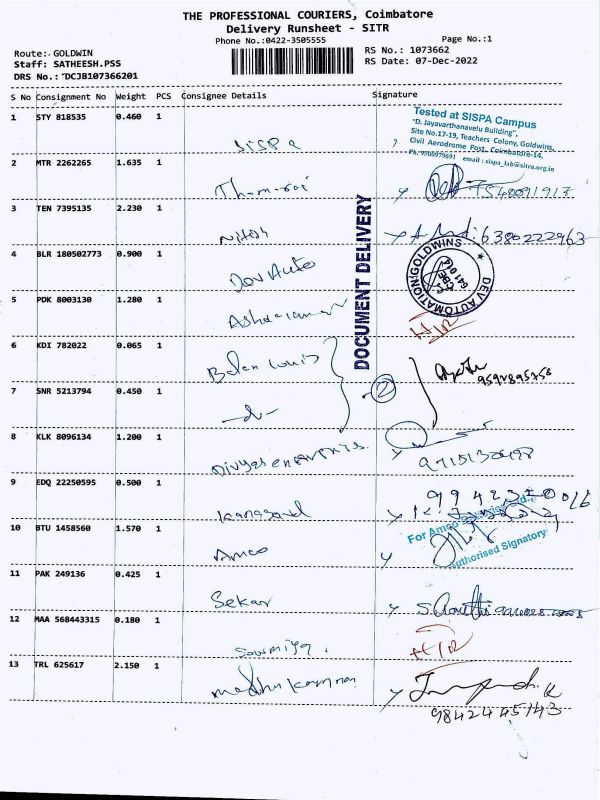 THE PROFESSIONAL COURIERS, Coimbatore
Delivery Runsheet - SITR
Phone No.:0422-3505555
Page No.:1
Route: GOLDWIN
RS No.: 1073662
Staff: SATHEESH.PSS
RS Date: 07-Dec-2022
DRS No.: DCJB107366201
S No Consignment No Weight PCS Consignee Details Signature
1 STY 818535 0.460 1
SISPA
Tested at SISPA Campus
"D. Jayavarthanavelu Building",
Site No.17-19, Teachers Colony, Goldwins,
Civil Aerodrome Post, Coimbatore-14.
email : sispa_lab@sitra.org.in
2 MTR 2262265 1.635 1
3 TEN 7395135 2.230 1
6380222963
4 BLR 180502773 0.900 1
Dev Auto
DEV AUTOMATION GOLDWINS
CBE
641 014
DOCUMENT DELIVERY
5 PDK 8003130 1.280 1
H/R
6 KDI 782022 0.065 1
Balan Louis
7 SNR 5213794 0.450 1
2
8 KLK 8096134 1.200 1
9 EDQ 22250595 0.500 1
10 BTU 1458560 1.570 1
Amco
For Amco
Authorised Signatory
11 PAK 249136 0.425 1
Sekar
12 MAA 568443315 0.180 1
Sowmiya.
H/R
13 TRL 625617 2.150 1
9842445143